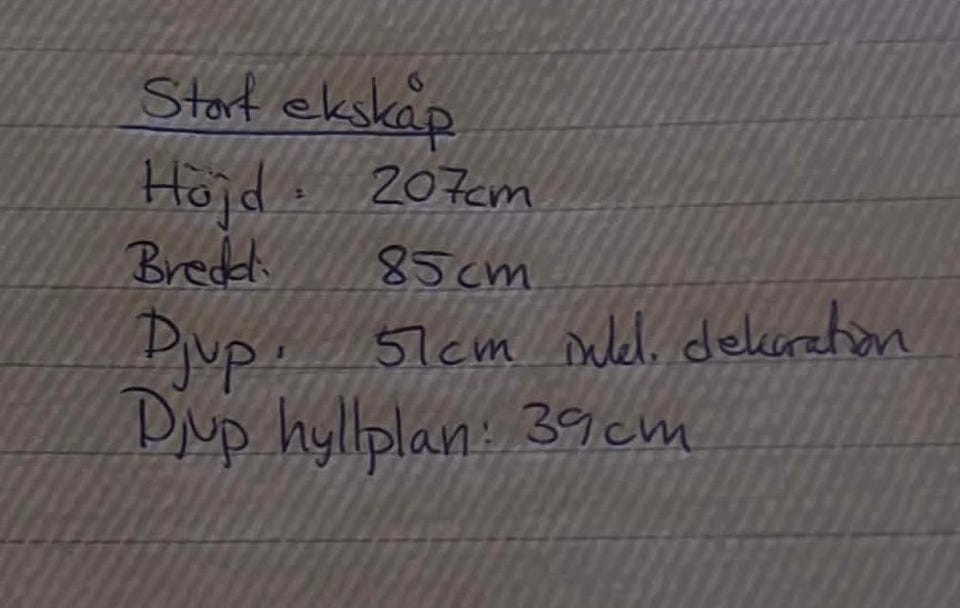 Stort ekskåp
Höjd: 207cm
Bredd: 85cm
Djup: 51cm inkl. dekoration
Djup hyllplan: 39cm